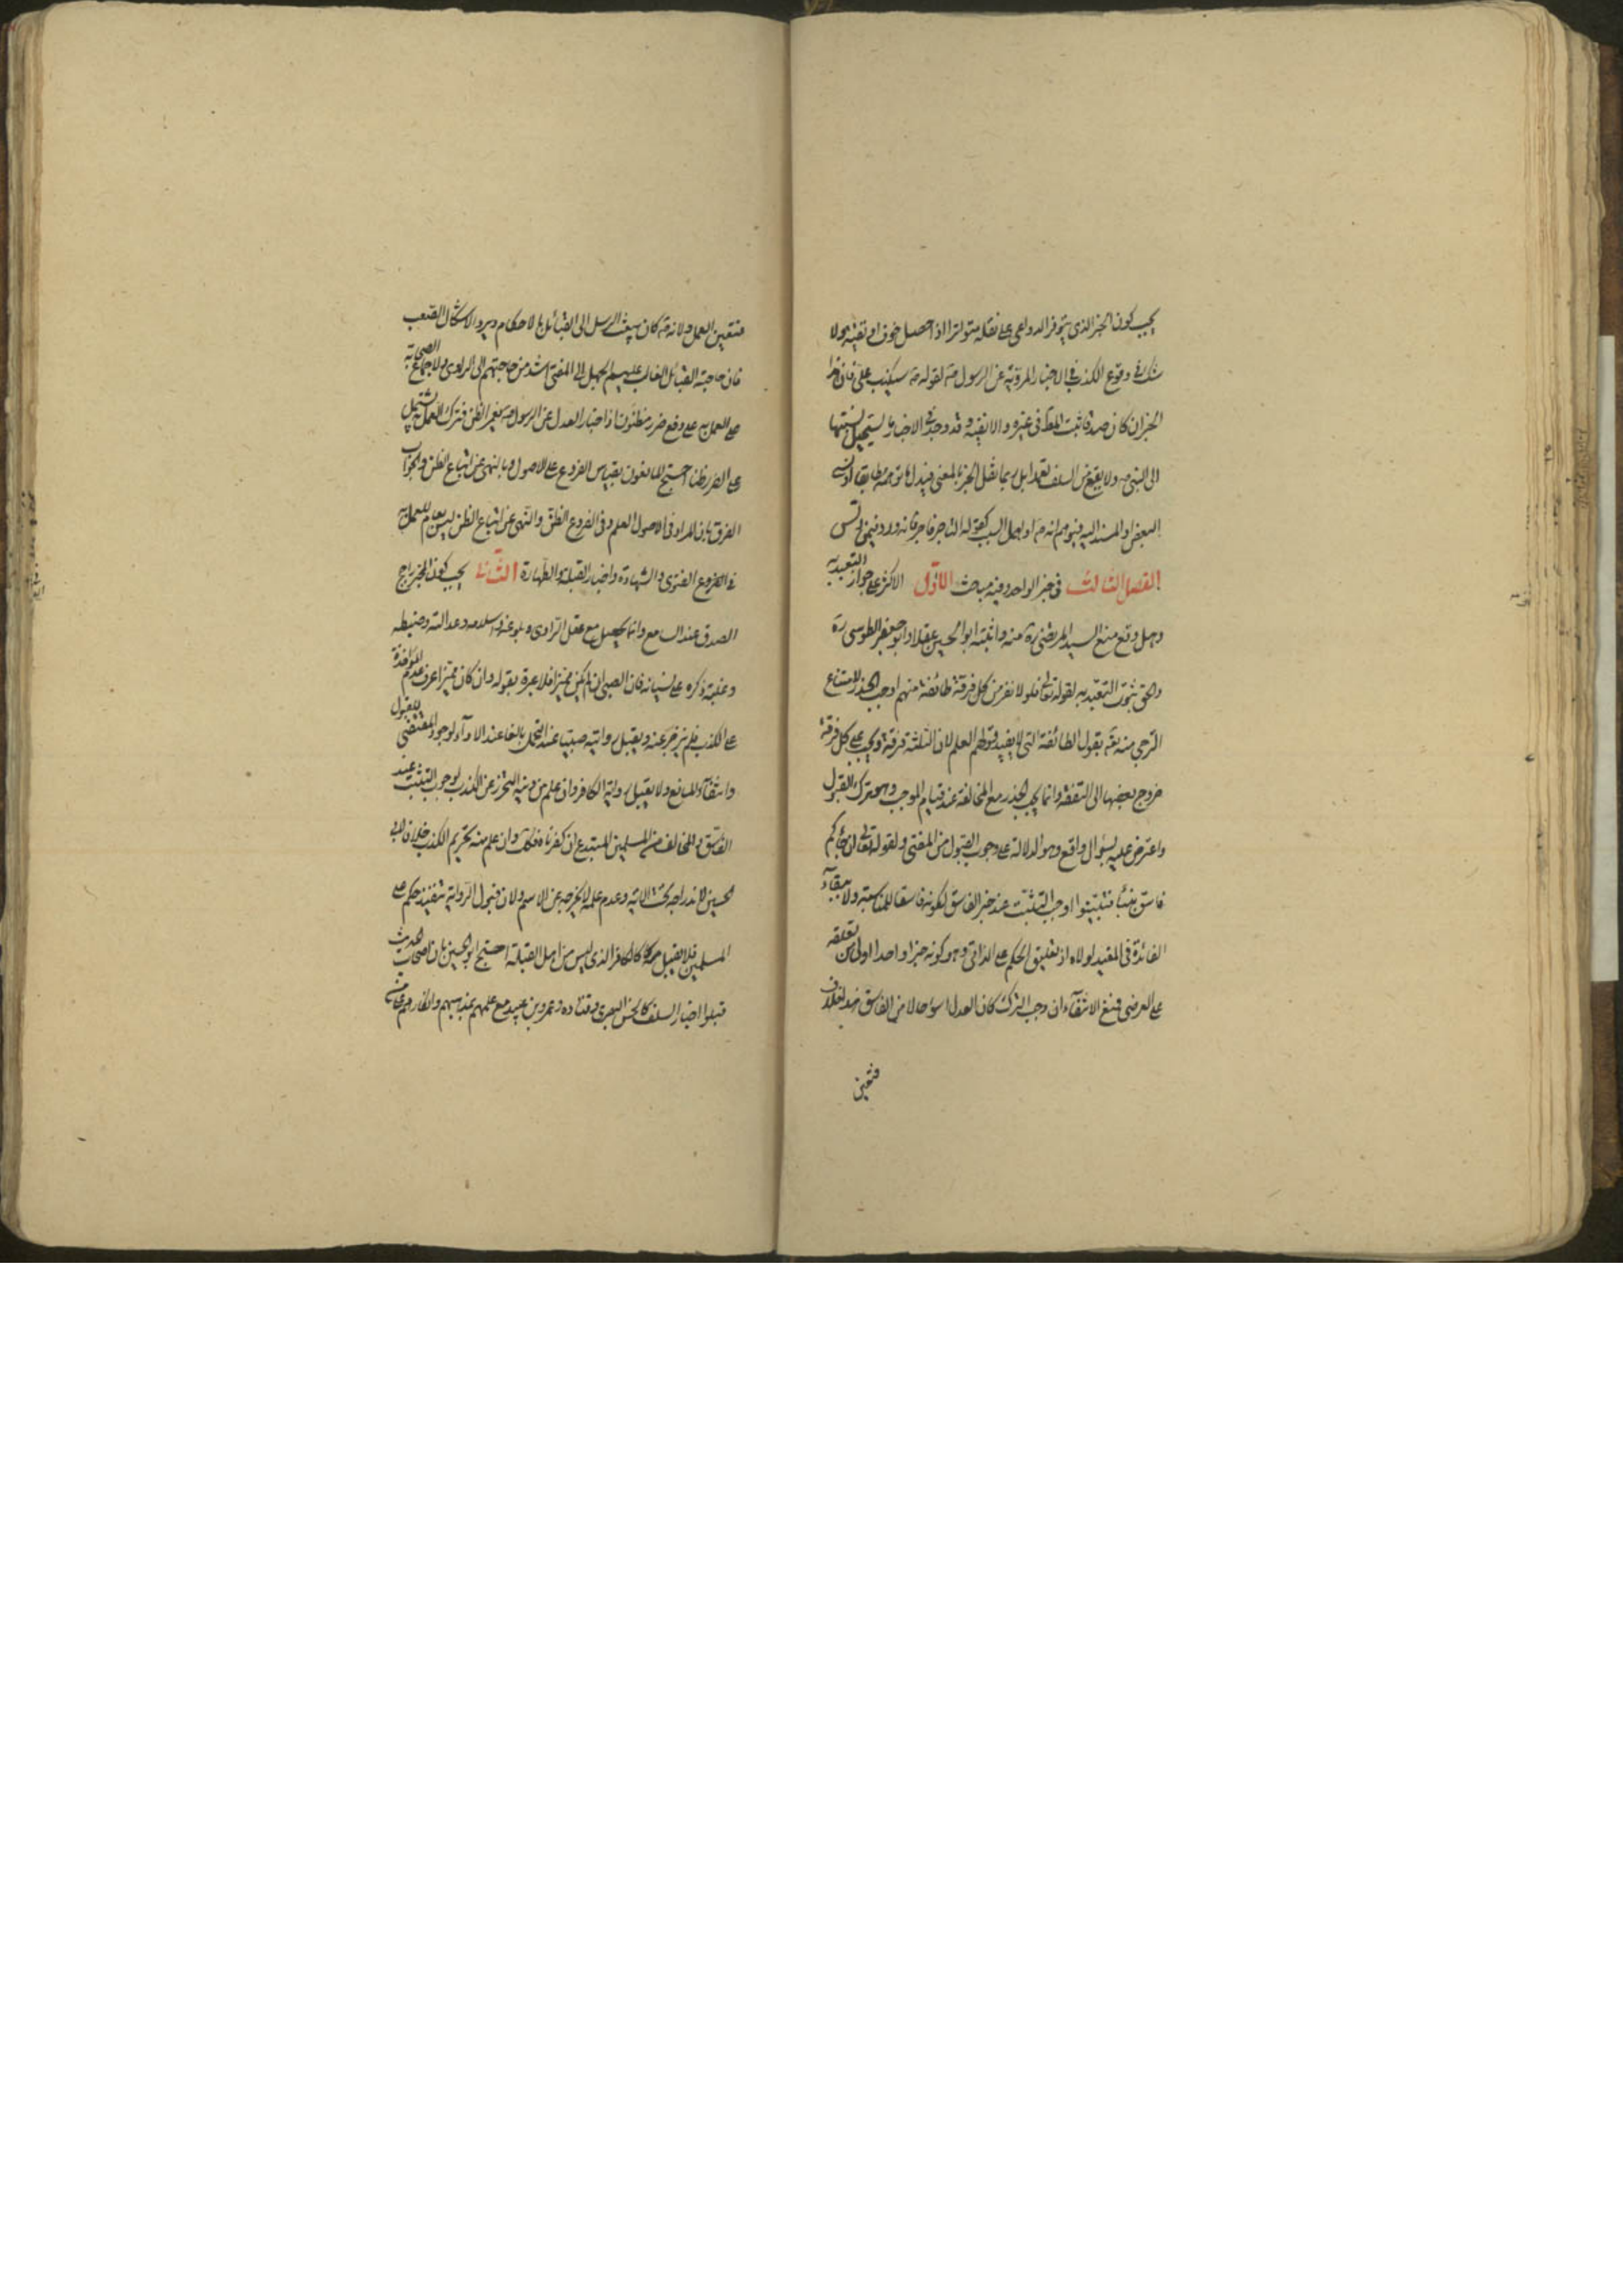 يجب كون الخبر الذى يتوفر الدواعى على نقله متواترا الا اذا حصل خوف او تقية ولا
شك فى وقوع الكذب فى الاخبار المروية عن الرسول صه لقوله صه سيكذب على فان هذا
الخبر ان كان صدقا ثبت المط فى غيره والا ففيه وقد وجد فى الاخبار ما يستحيل نسبتها
الى النبى صه ولا يقع من السلف تعمدا بل ربما نقل الخبر بالمعنى فبدل ما توهمه مطابقا او نسى
البعض او المسند اليه فتوهم انه صه او اهمل السبب كقوله التاجر فاجر فانه ورد فيمن دلس
الفصل الثالث فى خبر الواحد وفيه مباحث الاول الاكثر على جواز التعبد به
وهل وقع منع السيد المرتضى ره منه واثبته ابو الحسين عقلا وابو جعفر الطوسى ره
والحق ثبوت التعبد به لقوله تعالى فلولا نفر من كل فرقة طائفة منهم اوجب الحذر لامتناع
الترجى منه تعه بقول الطائفة التى لا يفيد قولهم العلم لان الثلثة فرقة ويجب على كل فرقة
خروج بعضها الى التفقه وانما يجب الحذر مع المخالفة عند قيام الموجب وهو ترك القبول
واعترض عليه بسؤال واقع وهو الدلالة على وجوب القبول من المفتى ولقوله تعالى ان جاءكم
فاسق بنبأ فتبينوا اوجب التثبت عند خبر الفاسق لكونه فاسقا للمناسبة ولانتفاء
الفائدة فى المقيد لولاه اذ تعليق الحكم على الذاتى وهو كونه خبرا واحدا اولى من تعلقه
على العرضى فمنع الانتفاء ان وجب الترك كان العدل اسوأ حالا من الفاسق هذا خلف
فتعين
فتعين العمل ولانه صه كان يبعث الرسل الى القبائل بالاحكام ويرد الاشكال الصعب
فان حاجة القبائل الغالب عليهم الجهل الى المفتى اشد من حاجتهم الى الراوى ولاجماع الصحابة
على العمل به على دفع ضرر مظنون اذ اخبار العدل عن الرسول صه يثمر الظن فترك العمل به يشتمل
على الضرر ظنا احتج المانعون بقياس الفروع على الاصول وبالنهى عن اتباع الظن والجواب
الفرق بان المراد فى الاصول العلم وفى الفروع الظن والنهى عن اتباع الظن ليس بعام للعمل به
فى الفروع الفتوى والشهادة واخبار القبلة والطهارة الثانى يجب كون الخبر راجح
الصدق عند السامع وانما يحصل مع عقل الراوى وبلوغه واسلامه وعدالته وضبطه
وغلبة ذكره على نسيانه فان الصبى ان لم يكن مميزا فلا عبرة بقوله وان كان مميزا عرف عدم المؤاخذة
على الكذب فلم يزجر عنه ويقبل روايته صبيا عند التحمل بالغا عند الاداء لوجود المقتضى للقبول
وانتفاء المانع ولا يقبل رواية الكافر وان علم من دينه التحرز عن الكذب لوجوب التثبت عند
الفاسق والمخالف من المسلمين المبتدع ان كفرناه فكك وان علم منه تحريم الكذب خلافا لابى
الحسين لاندراجه تحت الاية وعدم علمه لا يخرجه عن الاسم ولان قبول الرواية تنفيذ حكم على
المسلمين فلا يقبل كالكافر الذى ليس من اهل القبلة احتج ابو الحسين بان اصحاب الحديث
قبلوا اخبار السلف كالحسن البصرى وقتادة وعمرو بن عبيد مع علمهم بمذهبهم وانكارهم على من